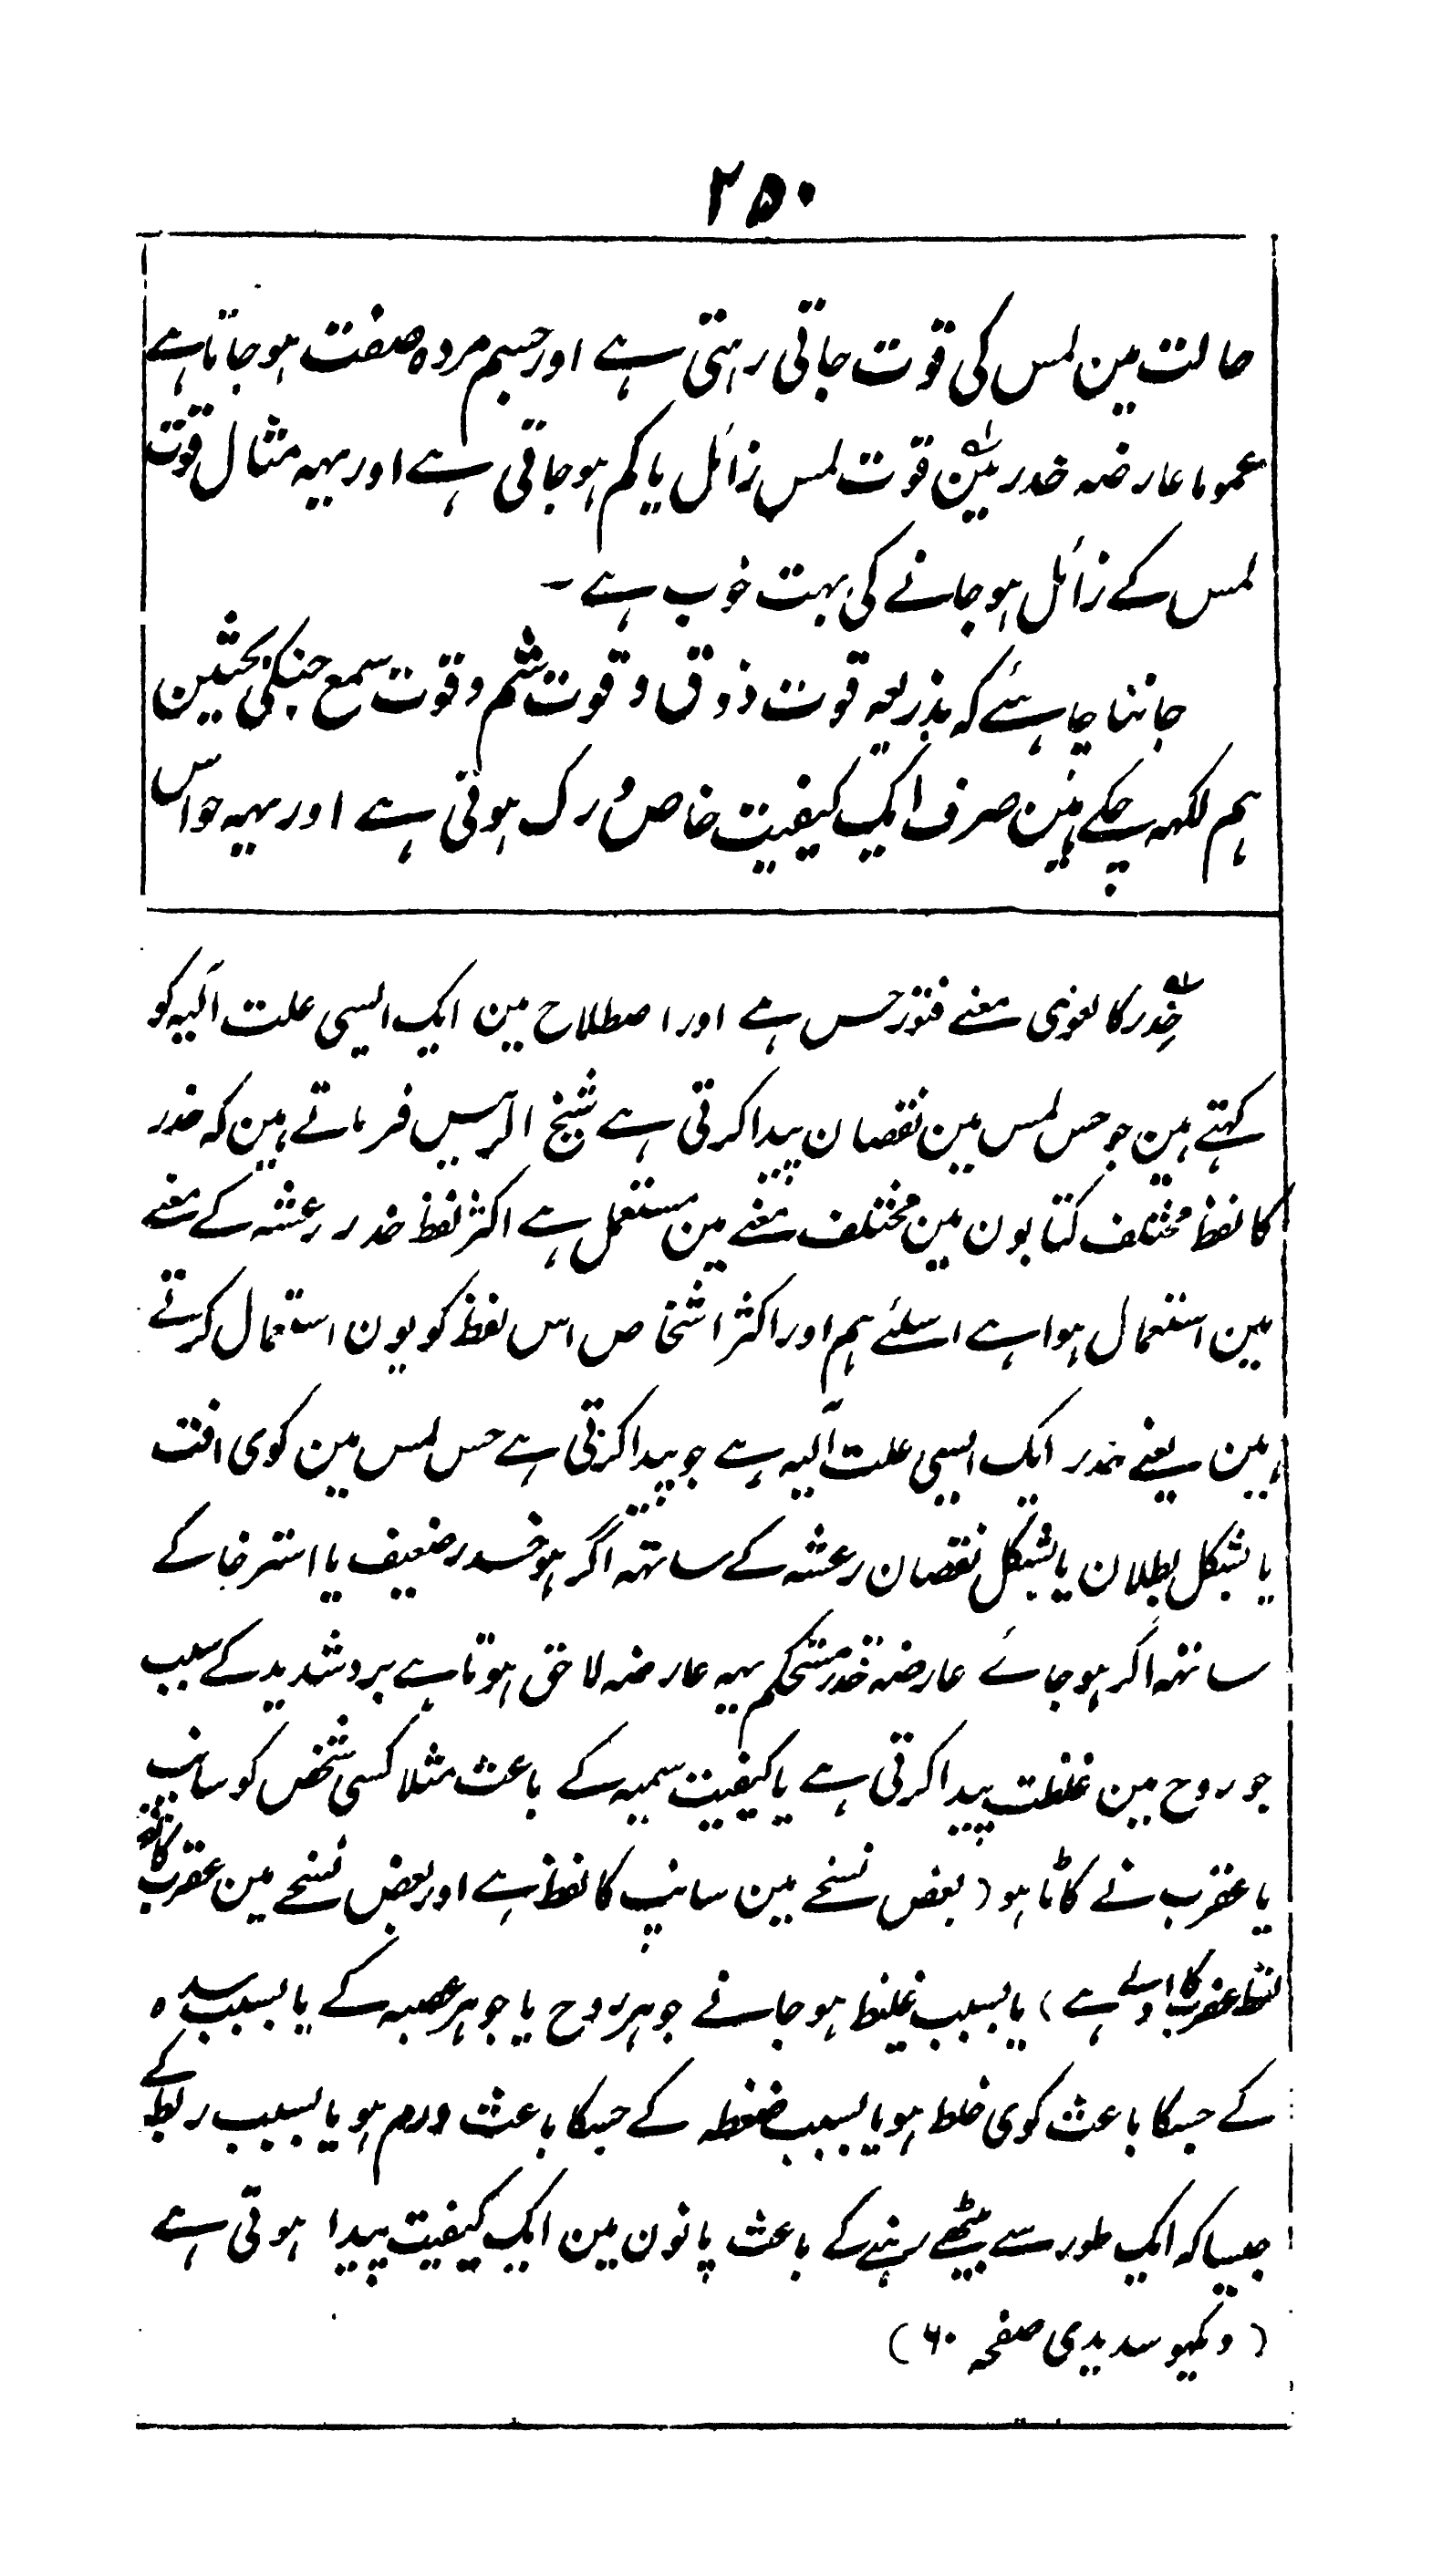 ۲۵۰
حالت مین لمس کی قوت جاتی رہتی ہے اور جسم مردہ صفت ہوجاتا ہے
عموما عارضہ خدر مین قوت لمس زائل یا کم ہوجاتی ہے اور یہہ مثال قوت
لمس کے زائل ہوجانے کی بہت خوب ہے ۔
جاننا چاہئے کہ بذریعہ قوت ذوق و قوت شم و قوت سمع جنکی بحثین
ہم لکھہ چکے ہین صرف ایک کیفیت خاص درک ہوتی ہے اور یہہ حواس
خدر کا لغوی معنے فتور حس ہے اور اصطلاح مین ایک ایسی علت آلیہ کو
کہتے ہین جو حس لمس مین نقصان پیدا کرتی ہے شیخ الرئیس فرماتے ہین کہ خدر
کا لفظ مختلف کتابون مین مختلف معنے مین مستعمل ہے اکثر لفظ خدر رعشہ کے معنے
مین استعمال ہوا ہے اسلئے ہم اور اکثر اشخاص اس لفظ کو یون استعمال کرتے
ہین یعنے خدر ایک ایسی علت آلیہ ہے جو پیدا کرتی ہے حس لمس مین کوی افت
یا بشکل بطلان یا بشکل نقصان رعشہ کے ساتہہ اگر ہو خدر ضعیف یا استرخا کے
ساتہہ اگر ہوجائے عارضہ خدر مستحکم یہہ عارضہ لاحق ہوتا ہے برد شدید کے سبب
جو روح مین غلظت پیدا کرتی ہے یا کیفیت سمیہ کے باعث مثلا کسی شخص کو سانپ
یا عقرب نے کاٹا ہو (بعض نسخے مین سانپ کا لفظ ہے اور بعض نسخے مین عقرب کا
لفظ عقرب کا اولے ہے) یا بسبب غلیظ ہوجانے جوہر روح یا جوہر عصبہ کے یا بسبب سدہ
کے جسکا باعث کوی خلط ہو یا بسبب ضغطہ کے جسکا باعث ورم ہو یا بسبب ربط کے
جیسا کہ ایک طور سے بیٹھے رہنے کے باعث پانون مین ایک کیفیت پیدا ہوتی ہے
(دیکہو سدیدی صفحہ ۶۰)